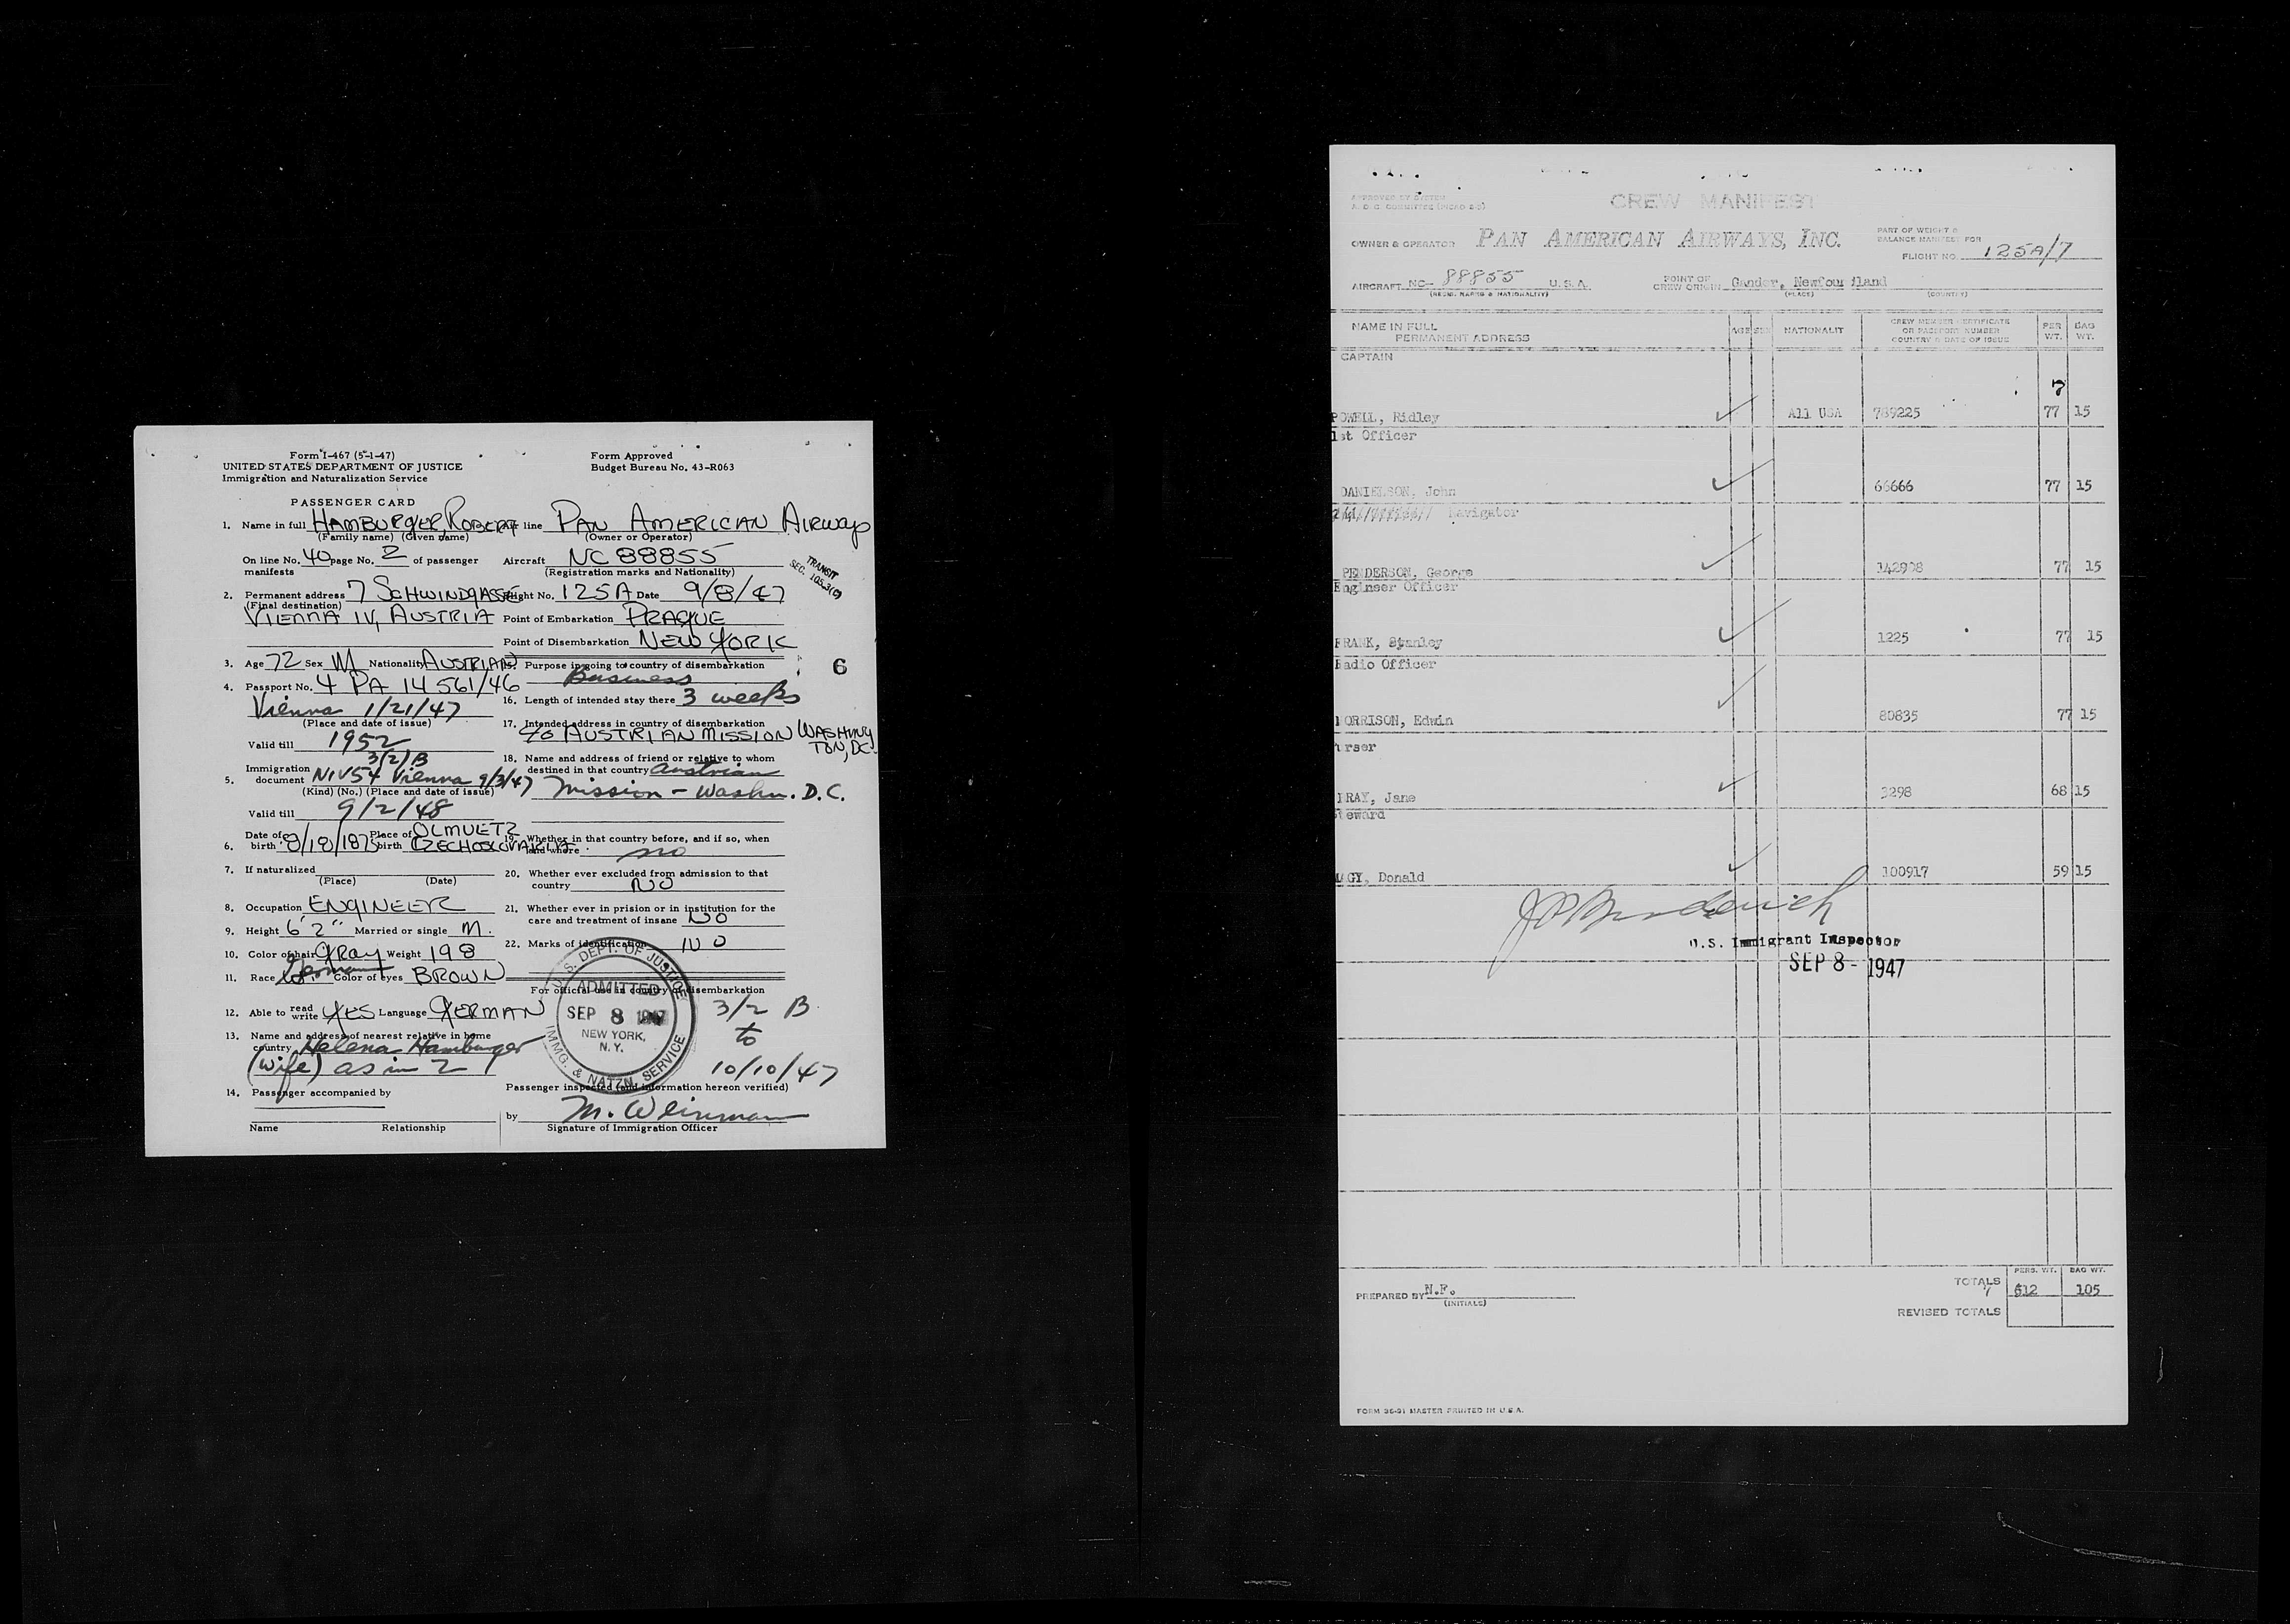 Form I-467 (5-1-47)
UNITED STATES DEPARTMENT OF JUSTICE
Immigration and Naturalization Service
Form Approved
Budget Bureau No. 43-R063
PASSENGER CARD
1. Name in full HAMBURGER, ROBERT
(Family name) (Given name)
On line No. 40 page No. 2 of passenger
manifests
2. Permanent address 7 SCHWINDGASSE
(Final destination)
VIENNA IV, AUSTRIA
3. Age 72 Sex M Nationality AUSTRIAN
4. Passport No. 4 PA 14561/46
Vienna 1/21/47
(Place and date of issue)
Valid till 1952
3(2)B
5. Immigration document NIV54 Vienna 9/3/47
(Kind) (No.) (Place and date of issue)
Valid till 9/2/48
6. Date of birth 8/18/1875 Place of birth OLMUETZ
CZECHOSLOVAKIA
7. If naturalized
(Place) (Date)
8. Occupation ENGINEER
9. Height 6' 2" Married or single M.
10. Color of hair GRAY Weight 198
11. Race German Color of eyes BROWN
12. Able to read write YES Language GERMAN
13. Name and address of nearest relative in home
country Helena Hamburger
(wife) as in 2
14. Passenger accompanied by
Name Relationship
Air line PAN AMERICAN AIRWAYS
(Owner or Operator)
Aircraft NC 88855
(Registration marks and Nationality)
TRANSIT
SEC. 105.3(c)
Flight No. 125A Date 9/8/47
Point of Embarkation PRAGUE
Point of Disembarkation NEW YORK
15. Purpose in going to country of disembarkation
Business
6
16. Length of intended stay there 3 weeks
17. Intended address in country of disembarkation
c/o AUSTRIAN MISSION WASHING
TON, DC.
18. Name and address of friend or relative to whom
destined in that country Austrian
Mission - Washn. D.C.
19. Whether in that country before, and if so, when
and where no
20. Whether ever excluded from admission to that
country NO
21. Whether ever in prision or in institution for the
care and treatment of insane NO
22. Marks of identification NO
For official use in country of disembarkation
U.S. DEPT. OF JUSTICE
ADMITTED
SEP 8 1947
NEW YORK,
N. Y.
IMMG. & NATZN. SERVICE
3/2 B
to
10/10/47
Passenger inspected (and information hereon verified)
by M. Weinman
Signature of Immigration Officer
CREW MANIFEST
OWNER & OPERATOR PAN AMERICAN AIRWAYS, INC.
PART OF WEIGHT &
BALANCE MANIFEST FOR
FLIGHT NO. 125A/7
AIRCRAFT NC- 88855 U.S.A.
(REGIS. MARKS & NATIONALITY)
POINT OF
CREW ORIGIN Gander, Newfoundland
(PLACE) (COUNTRY)
NAME IN FULL
PERMANENT ADDRESS
AGE SEX NATIONALIT
CREW MEMBER CERTIFICATE
OR PASSPORT NUMBER
COUNTRY & DATE OF ISSUE
PER WT. BAG WT.
CAPTAIN
7
POWELL, Ridley All USA 789225 77 15
1st Officer
DANIELSON, John 66666 77 15
Navigator
PENDERSON, George 142908 77 15
Engineer Officer
FRANK, Stanley 1225 77 15
Radio Officer
MORRISON, Edwin 80835 77 15
urser
BRAY, Jane 3298 68 15
teward
Donald 100917 59 15
U.S. Immigrant Inspector
SEP 8 - 1947
PREPARED BY N.F.
(INITIALS)
PERS. WT. BAG WT.
TOTALS 7 512 105
REVISED TOTALS
FORM 36-91 MASTER PRINTED IN U.S.A.